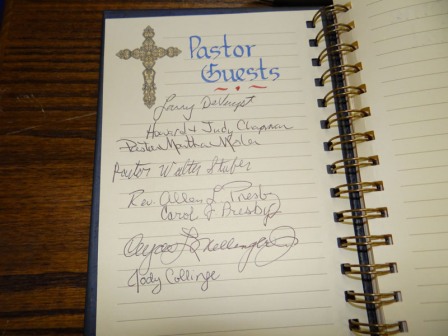 Pastor
Guests
Larry DeVengt
Howard & Judy Chapman
Pastor Martha
Pastor Walter
Rev. Allen L. Presby
Carol J Presby
Jody Collinge